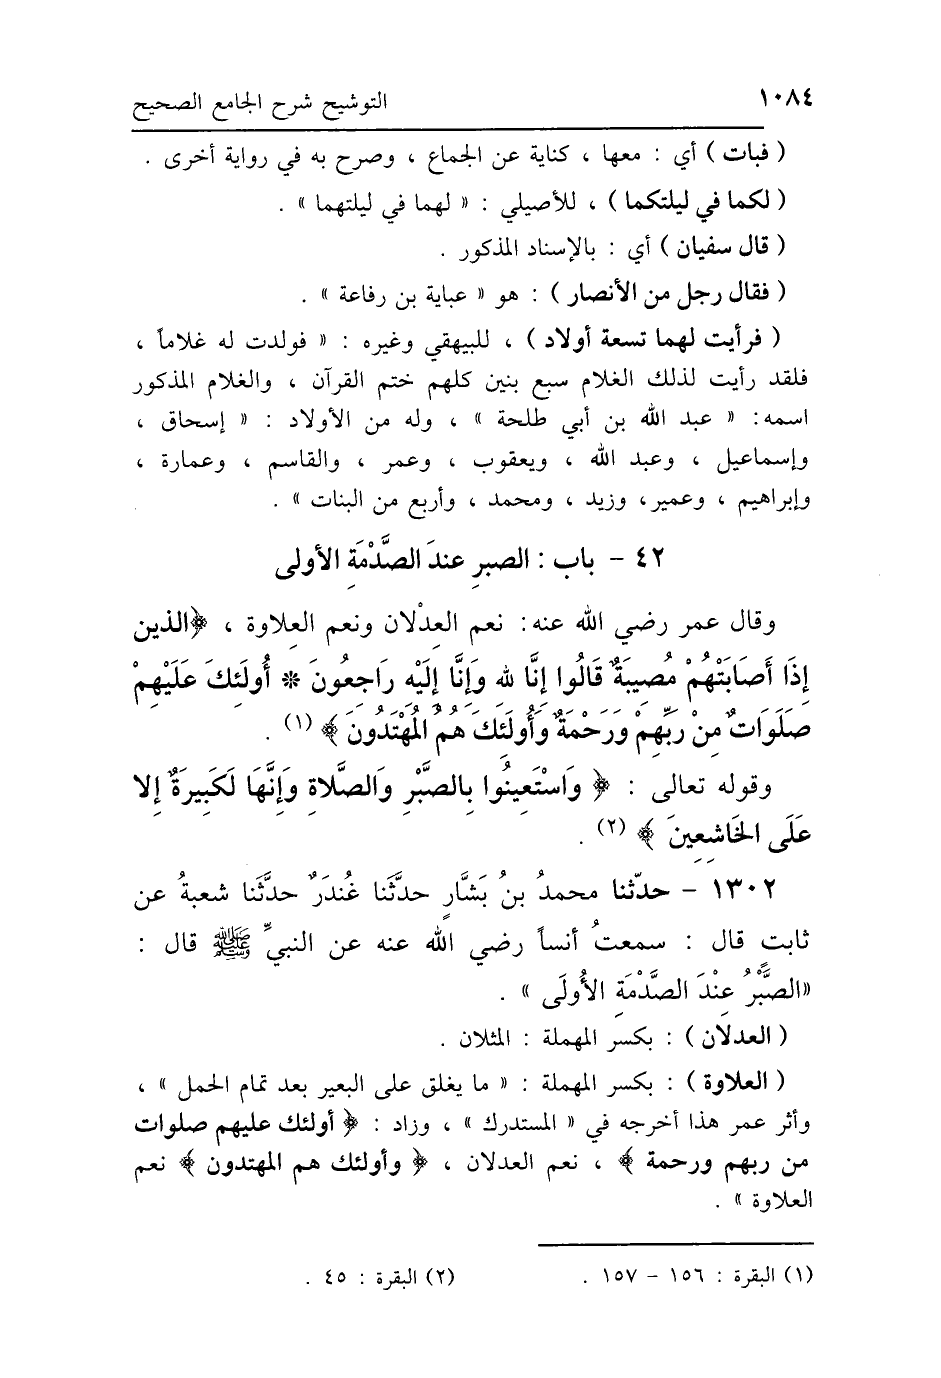 ١٠٨٤ التوشيح شرح الجامع الصحيح
( فبات ) أي : معها ، كناية عن الجماع ، وصرح به في رواية أخرى .
( لكما في ليلتكما ) ، للأصيلي : « لهما في ليلتهما » .
( قال سفيان ) أي : بالإسناد المذكور .
( فقال رجل من الأنصار ) : هو « عباية بن رفاعة » .
( فرأيت لهما تسعة أولاد ) ، للبيهقي وغيره : « فولدت له غلاماً ،
فلقد رأيت لذلك الغلام سبع بنين كلهم ختم القرآن ، والغلام المذكور
اسمه : « عبد الله بن أبي طلحة » ، وله من الأولاد : « إسحاق ،
وإسماعيل ، وعبد الله ، ويعقوب ، وعمر ، والقاسم ، وعمارة ،
وإبراهيم ، وعمير، وزيد ، ومحمد ، وأربع من البنات » .
٤٢ - باب : الصبرِ عندَ الصَّدْمَةِ الأولى
وقال عمر رضي الله عنه: نعم العِدْلان ونعم العِلاوة ، ﴿الذين
إِذَا أَصَابَتْهُمْ مُصِيبَةٌ قَالُوا إِنَّا لِلهِ وَإِنَّا إِلَيْهِ رَاجِعُونَ * أُولَئِكَ عَلَيْهِمْ
صَلَوَاتٌ مِنْ رَبِّهِمْ وَرَحْمَةٌ وَأُولَئِكَ هُمُ الْمُهْتَدُونَ ﴾ (١) .
وقوله تعالى : ﴿ وَاسْتَعِينُوا بِالصَّبْرِ وَالصَّلاةِ وَإِنَّهَا لَكَبِيرَةٌ إِلا
عَلَى الخَاشِعِينَ ﴾ (٢) .
١٣٠٢ - حدّثنا محمدُ بنُ بَشَّارٍ حدَّثَنا غُندَرٌ حدَّثَنا شعبةُ عن
ثابتٍ قال : سمعتُ أنساً رضي الله عنه عن النبيِّ ﷺ قال :
«الصَّبْرُ عِنْدَ الصَّدْمَةِ الأُولَى » .
( العدلان ) : بكسر المهملة : المثلان .
( العلاوة ) : بكسر المهملة : « ما يغلق على البعير بعد تمام الحمل » ،
وأثر عمر هذا أخرجه في « المستدرك » ، وزاد : ﴿ أولئك عليهم صلوات
من ربهم ورحمة ﴾ ، نعم العدلان ، ﴿ وأولئك هم المهتدون ﴾ نعم
العلاوة » .
(١) البقرة : ١٥٦ - ١٥٧ . (٢) البقرة : ٤٥ .